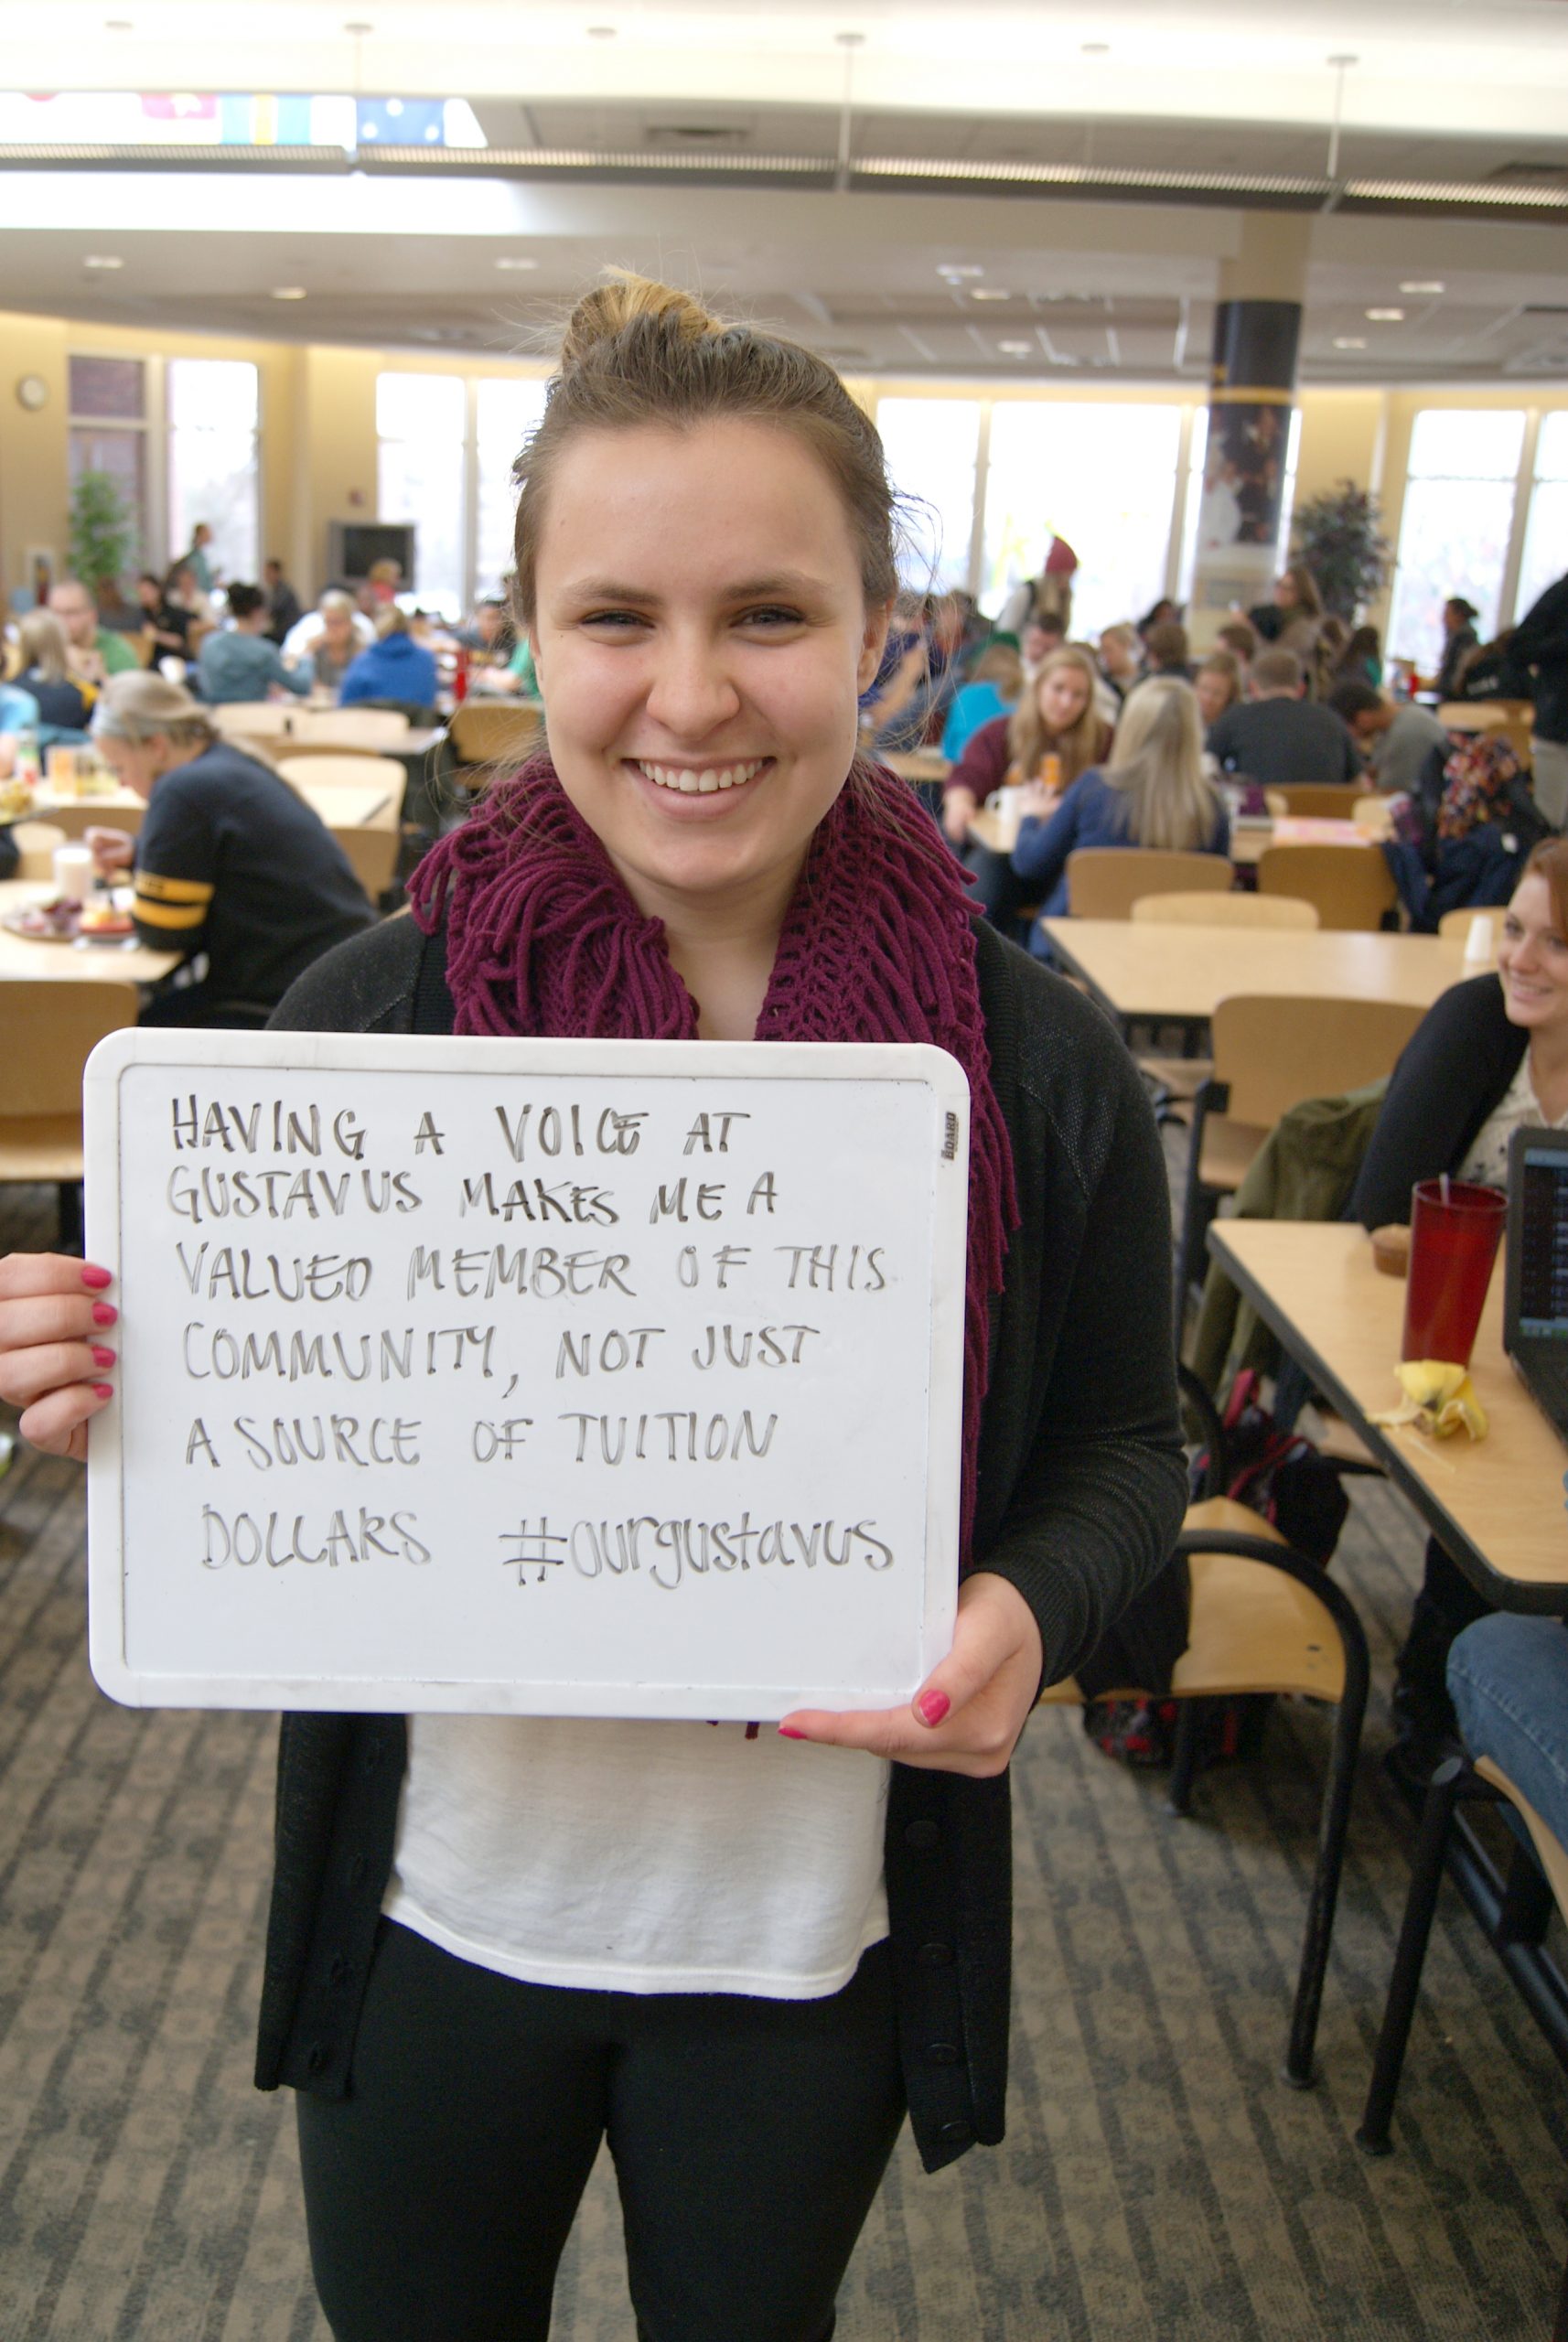 HAVING A VOICE AT
GUSTAVUS MAKES ME A
VALUED MEMBER OF THIS
COMMUNITY, NOT JUST
A SOURCE OF TUITION
DOLLARS #ourgustavus
BOARD